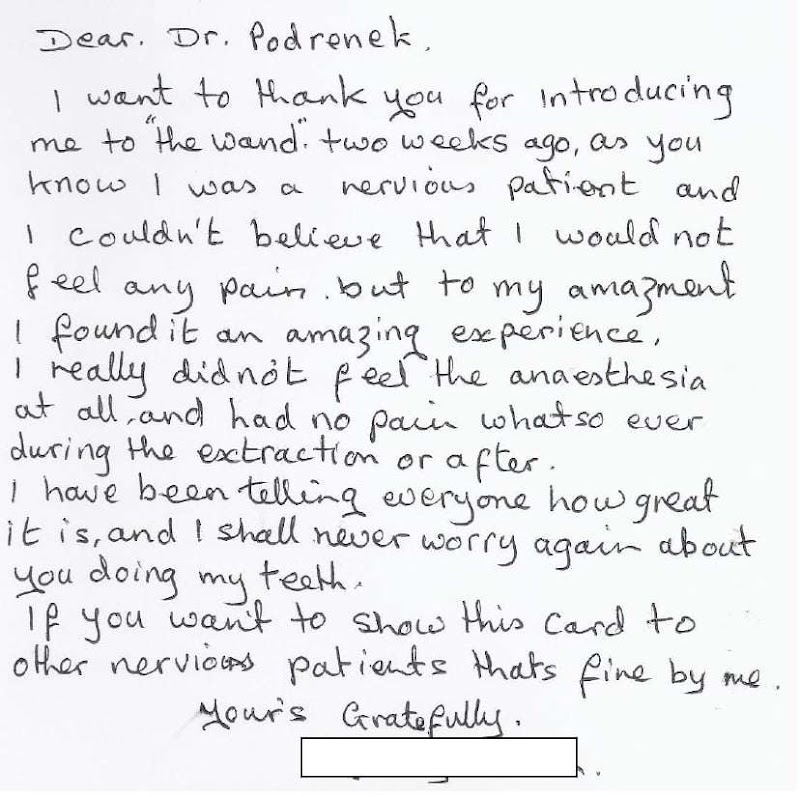 Dear. Dr. Podrenek.
I want to thank you for introducing
me to "the wand". two weeks ago, as you
know I was a nervious patient and
I couldn't believe that I would not
feel any pain. but to my amazment
I found it an amazing experience,
I really did not feel the anaesthesia
at all, and had no pain whatso ever
during the extraction or after.
I have been telling everyone how great
it is, and I shall never worry again about
you doing my teeth.
If you want to show this card to
other nervious patients thats fine by me.
Your's Gratefully.